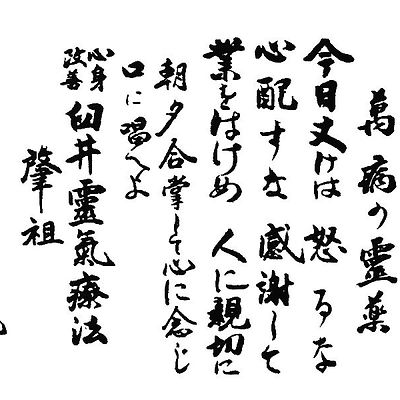 萬病の靈薬
今日丈けは 怒るな
心配すな 感謝して
業をはけめ 人に親切に
朝夕合掌して心に念じ
口に唱へよ
心身
改善
臼井靈氣療法
肇祖